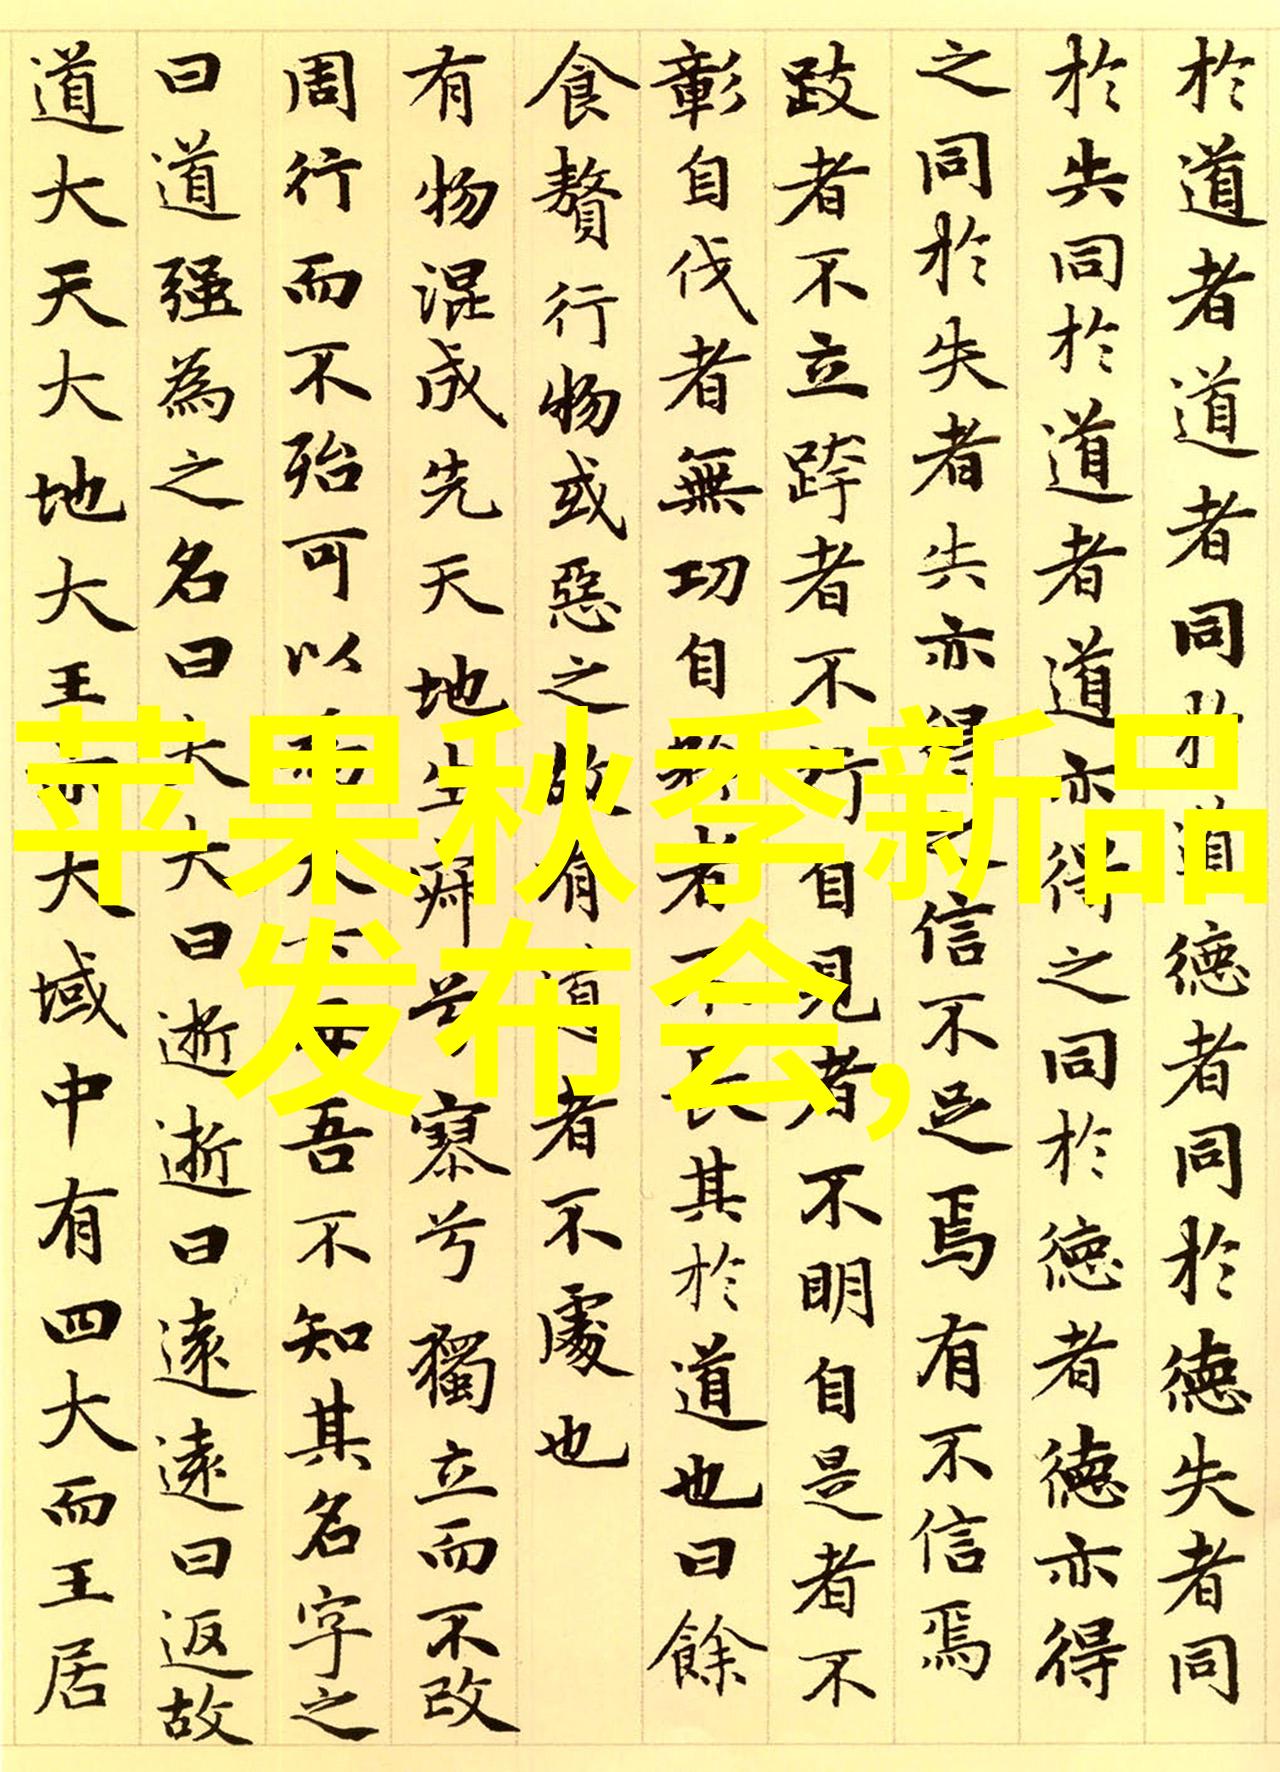 於道者道者同於道德者同於德失者同
於失同於道者道亦得之同於德者德亦得
之同於失者失亦得之信不足焉有不信焉
跂者不立跨者不行自見者不明自是者不
彰自伐者無功自矜者不長其於道也曰餘
食贅行物或惡之故有道者不處也
有物混成先天地生寂兮寥兮獨立而不改
周行而不殆可以為天下母吾不知其名字之
曰道强為之名曰大大曰逝逝曰遠遠曰返故
道大天大地大王亦大域中有四大而王居
苹果秋季新品
发布会,